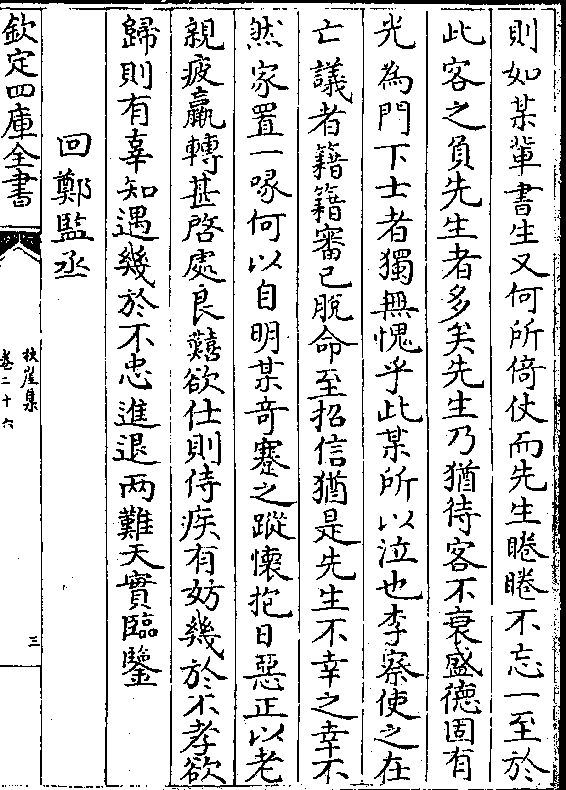 則如某輩書生又何所倚仗而先生睠睠不忘一至於
此客之負先生者多矣先生乃猶待客不衰盛德固有
光為門下士者獨無愧乎此某所以泣也李察使之在
亡議者籍籍審已脫命至招信猶是先生不幸之幸不
然家置一喙何以自明某奇蹇之蹤懷抱日惡正以老
親疲羸轉甚啓處良囏欲仕則侍疾有妨幾於不孝欲
歸則有辜知遇幾於不忠進退兩難天實臨鑒
回鄭監丞
欽定四庫全書
秋崖集
卷二十六
三